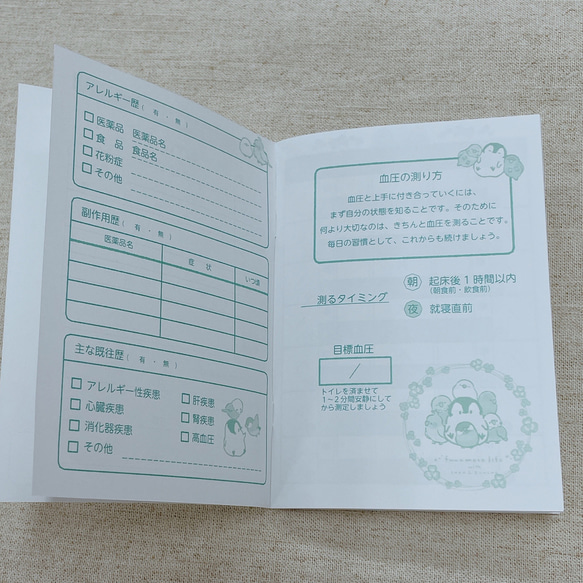 アレルギー歴（ 有 ・ 無 ）
□医薬品 医薬品名
□食 品 食品名
□花粉症
□その他
副作用歴（ 有 ・ 無 ）
医薬品名 症 状 いつ頃
主な既往歴（ 有 ・ 無 ）
□アレルギー性疾患 □肝疾患
□心臓疾患 □腎疾患
□消化器疾患 □高血圧
□その他
血圧の測り方
血圧と上手に付き合っていくには、
まず自分の状態を知ることです。そのために
何より大切なのは、きちんと血圧を測ることです。
毎日の習慣として、これからも続けましょう。
測るタイミング
朝 起床後１時間以内
（朝食前・飲食前）
夜 就寝直前
目標血圧
／
トイレを済ませて
１～２分間安静にして
から測定しましょう